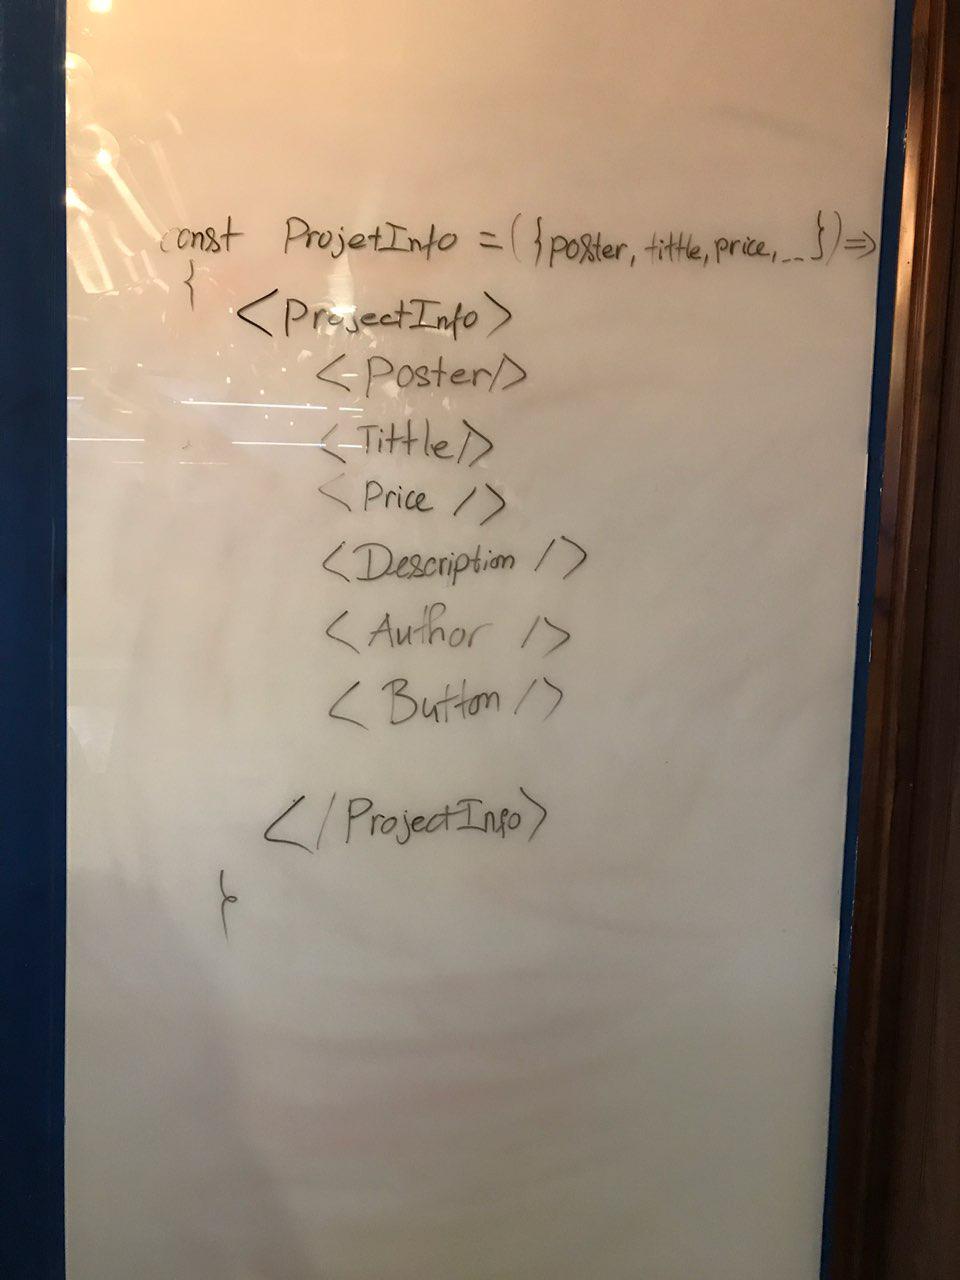 const ProjetInfo = ({poster, tittle, price, -- }) =>
{
<ProjectInfo>
<Poster/>
<Tittle/>
<Price />
<Description />
<Author />
<Button />
</ProjectInfo>
}